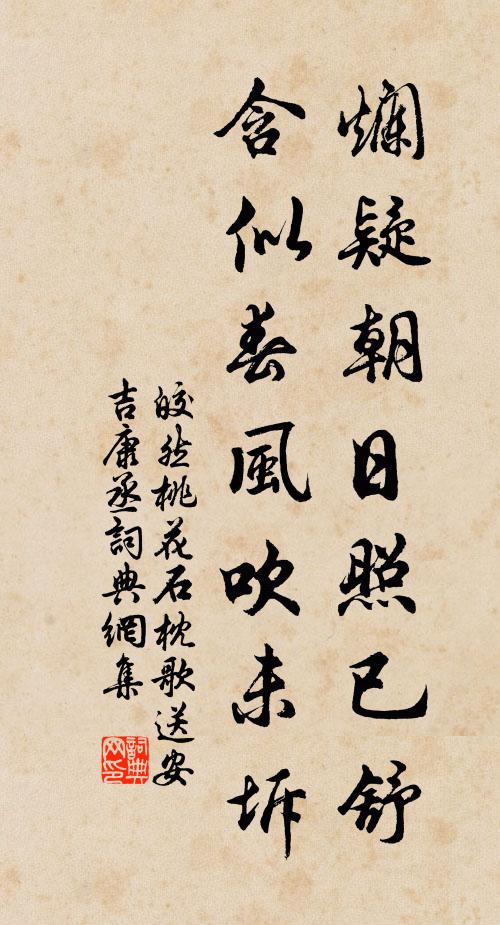 爛疑朝日照已舒
含似春風吹未坼
皎然桃花石枕歌送安
吉康丞詞典網集
詞典網印